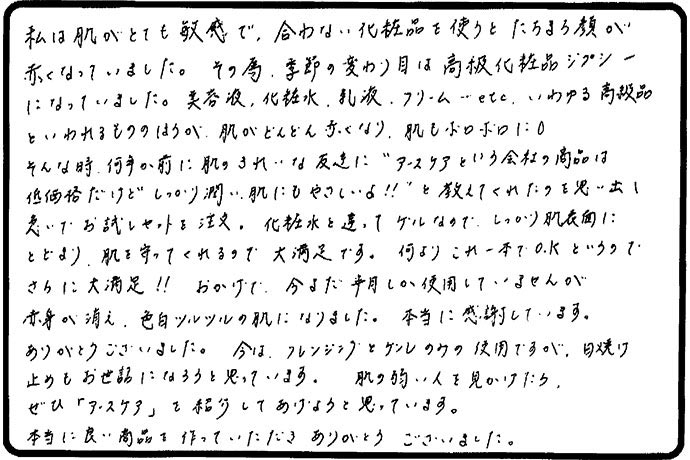 私は肌がとても敏感で、合わない化粧品を使うとたちまち顔が
赤くなっていました。その為、季節の変わり目は高級化粧品ジプシー
になっていました。美容液、化粧水、乳液、クリーム…etc、いわゆる高級品
といわれるもののほうが、肌がどんどん赤くなり、肌もボロボロに。
そんな時、何年か前に肌のきれいな友達に"アースケアという会社の商品は
低価格だけどしっかり潤い、肌にもやさしいよ!!"と教えてくれたのを思い出し
急いでお試しセットを注文。化粧水と違ってゲルなので、しっかり肌表面に
とどまり、肌を守ってくれるので大満足です。何よりこれ一本でO.Kというので
さらに大満足!!おかげで、今まだ半月しか使用していませんが
赤身が消え、色白ツルツルの肌になりました。本当に感謝しています。
ありがとうございました。今は、クレンジングとゲルのみの使用ですが、日焼け
止めもお世話になろうと思っています。肌の弱い人を見かけたら、
ぜひ「アースケア」を紹介してあげようと思っています。
本当に良い商品を作っていただきありがとうございました。